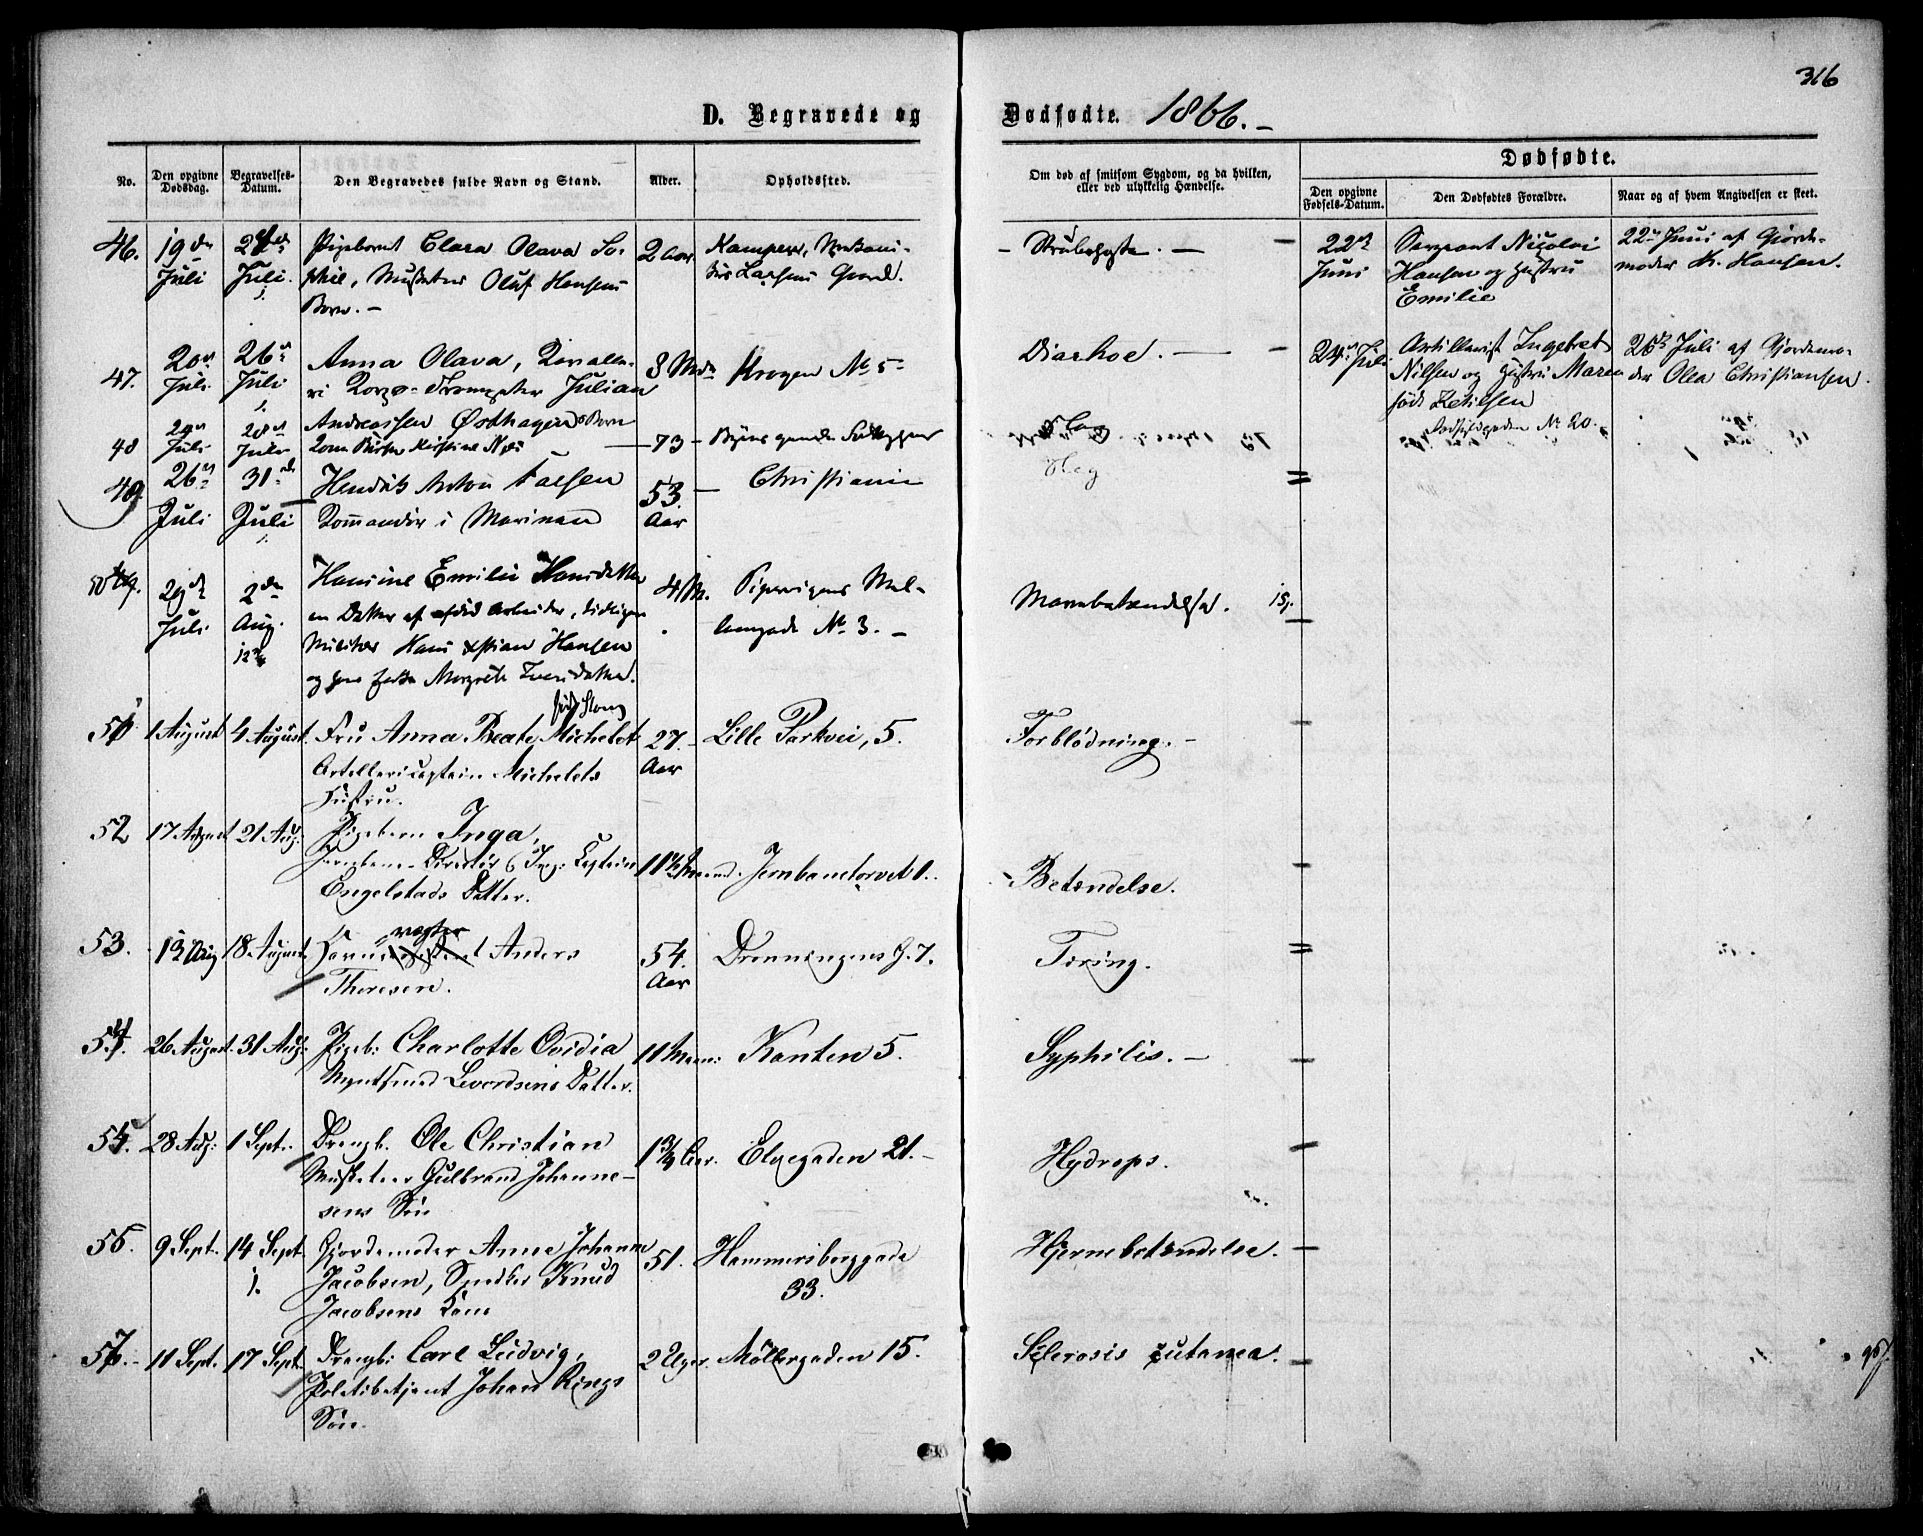 316
D. Begravede og Dødfødte. 1866.
No.
Den opgivne Dødsdag.
Begravelses-Datum.
Den Begravedes fulde Navn og Stand.
Alder.
Opholdssted.
Om død af smitsom Sygdom, og da hvilken,
eller ved ulykkelig Hændelse.
Dødfødte.
Den opgivne Fødsels-Datum.
Den Dødfødtes Forældre.
Naar og af hvem Angivelsen er skeet.
46. 19de Juli
Juli.
Pigebarnet Clara Olava So-
phie, Musketeer Oluf Hansens
Barn.
2 Aar
Larsens Gaard.
Strubehoste.
22de Juni
Sergeant Nicolai
Hansen og Hustru
Emilie
22de Juni af Gjorde-
moder K. Hansen.
47. 20de Juli
26de Juli
Anna Olava, Kavalle-
ri Korps-Trompeter Julian
Andreassen Østhagens Barn
8 Mdr
Krogen No 5
Diarhoe.
24de Juli
Artillerist Ingebret
Nilsen og Hustru Maren
født Ketilsen
26de Juli af Gjordemo-
der Olea Christiansen.
No 20.
48
Juli
Juli
Kone
73
49. 26de Juli
31de Juli
Henrik Anton Falsen
Kommandør i Marinen
53 Aar
Christiania
50 29de Juli
2den Aug.
Hansine Emilie Hansdatter
en Datter af afdød Arbeider, tidligere
Militær Hans Xstian Hansen
og
4 M.
Pipervigens Mel-
lemgade No 3.
Mavebetændelse.
51 1 August
4 August.
Fru Anna Beate Michelet
født
Artillericaptein Michelets
Hustru.
27. Aar
Lille Parkvei, 5.
Forblødning.
52 17 August
21 Aug.
Pigebarn Inga,
Jernbane-Direktør & Ing: Captein
Engelstads Datter.
11½ Maaned.
Jernbanetorvet 1.
Betændelse.
53. 13 Aug
18 August.
vogter
Anders
Thoresen.
54. Aar
Dronningens G. 7.
Tæring.
54. 26 August.
31 Aug:
Pigeb: Charlotte Ovidia
Datter.
11 Maan:
Kanten 5.
Syphilis.
55. 28 Aug:
1 Sept.
Drengb. Ole Christian
Musketeer Gulbrand Johanne-
sens Søn
1¾ Aar.
Elvegaden 21.
Hydrops.
56. 9 Sept.
14 Sept.
Gjordemoder Anne Johanne
Jacobsen, Snedker Knud
Jacobsens Kone
51.
Hammersborggade
33.
Hjernebetændelse.
57. 11 Sept.
17 Sept.
Drengb: Carl Ludvig,
Politibetjent Johan Rings
Søn.
2 Uger.
Möllergaden 15.
Sclerosis cutanea.